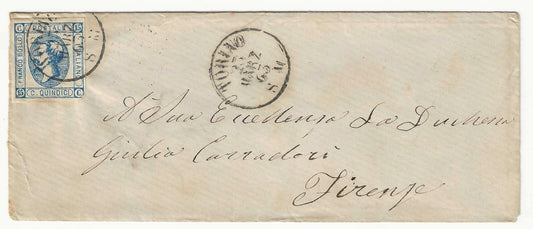 FRANCO BOLLO
POSTALE
ITALIANO
C. QUINDICI
TORINO
MARZ
63
8 M
A Sua Eccellenza La Duchessa
Giulia Corradori
Firenze